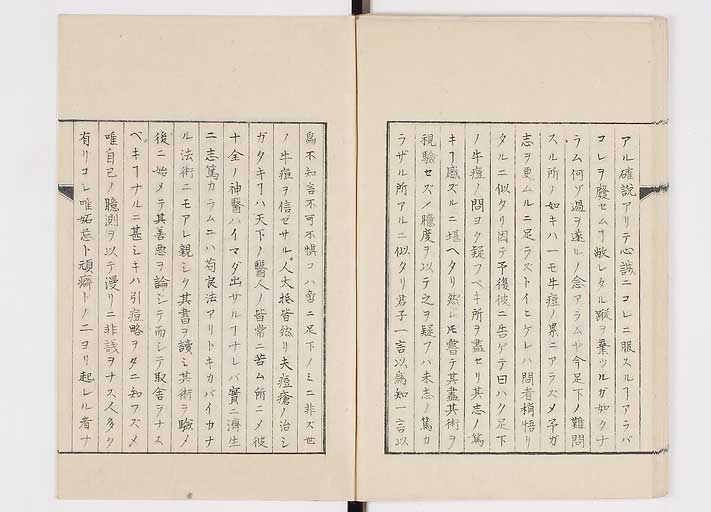 アル確説アリテ心誠ニコレニ服スルヿアラバ
コレヲ廢セムヿ敝レタル蹝ヲ棄ツルガ如クナ
ラム何ゾ過ヲ遂ルノ念アラムヤ今足下ノ難問
スル所ノ如キハ一モ牛痘ノ累ニアラズメ予ガ
志ヲ更ムルニ足ラストイヒケレハ問者稍悟リ
タルニ似タリ因テ予復彼ニ告ゲテ曰ハク足下
ノ牛痘ノ問ヨク疑フベキ所ヲ盡セリ其志ノ篤
キヿ感ズルニ堪ヘタリ然レ𪜈嘗テ其盡其術ヲ
視驗セズメ臆度ヲ以テ之ヲ疑フハ未志ノ篤カ
ラザル所アルニ似タリ君子一言以爲知一言以
爲不知言不可不慎コハ啻ニ足下ノミニ非ズ世
ノ牛痘ヲ信ゼサル人大抵皆然リ夫痘瘡ノ治シ
ガタキヿハ天下ノ醫人ノ皆常ニ苦ム所ニメ彼
十全ノ神醫ハイマダ出サルヿナレバ實ニ濟生
ニ志篤カラムニハ苟良法アリトキカバイカナ
ル法術ニモアレ親シク其書ヲ讀ミ其術ヲ驗メ
後ニ始メテ其善悪ヲ論シテ而シテ取舎ヲナス
ベキヿナルニ甚シキハ引痘略ヲタニ知ラズメ
唯自己ノ臆測ヲ以テ漫リニ非議ヲナス人多ク
有リコレ唯妬忌ト頑癖トノ二ヨリ起レル者ナ